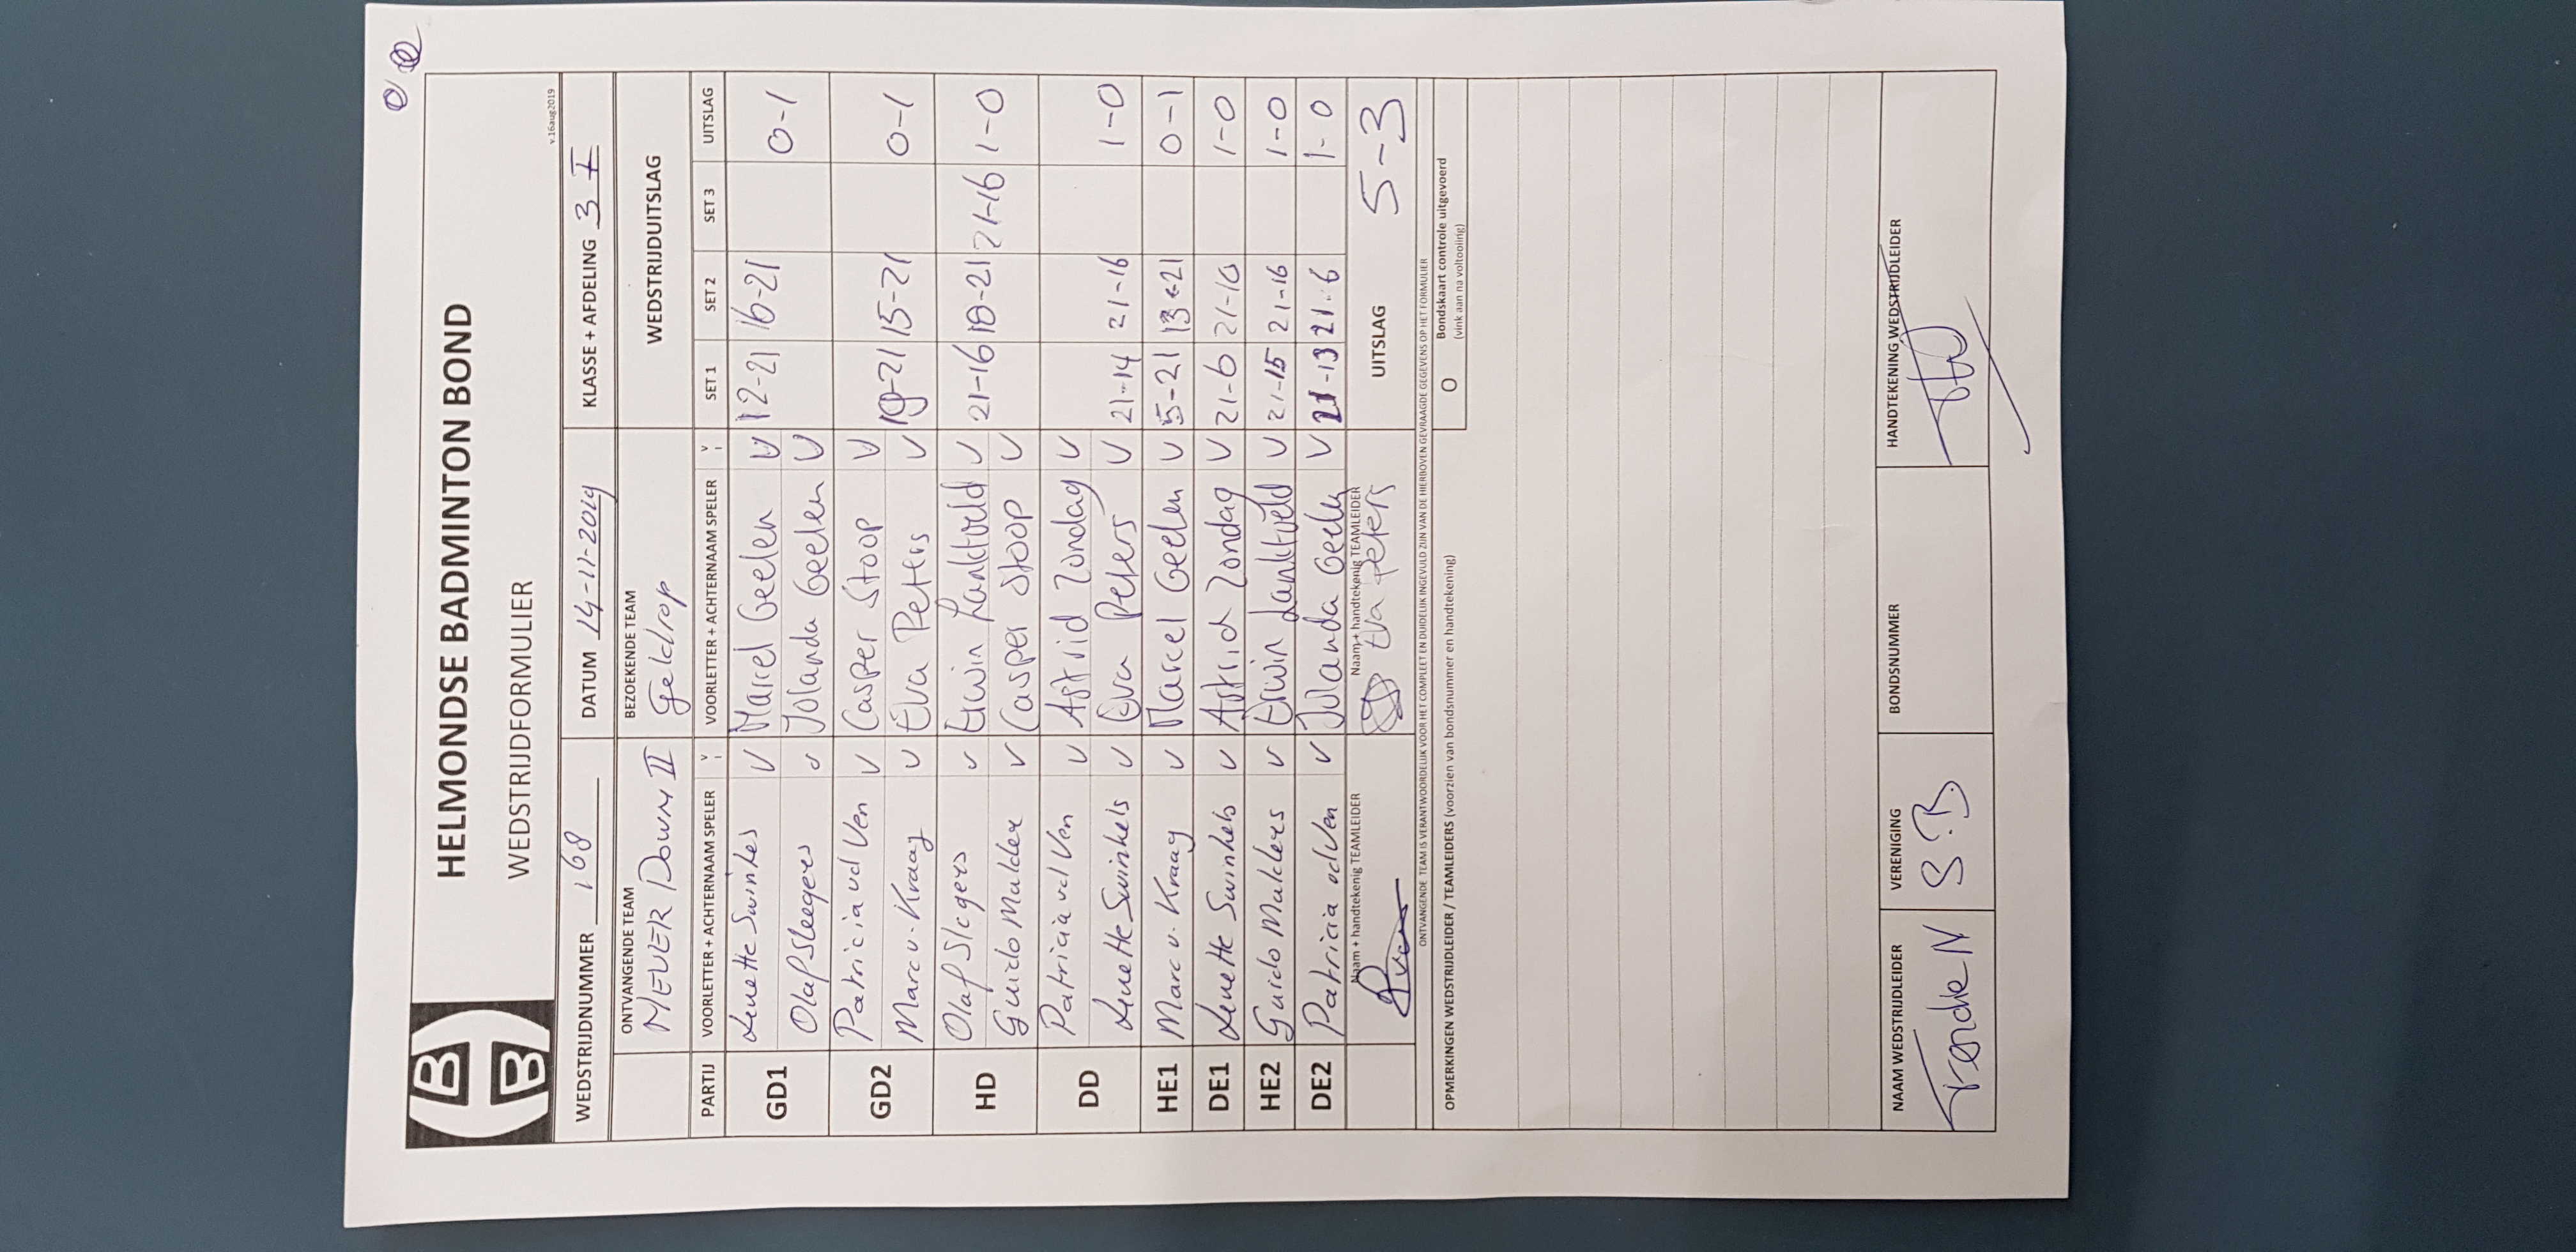 HELMONDSE BADMINTON BOND
WEDSTRIJDFORMULIER
v.16aug2019
WEDSTRIJDNUMMER 168 DATUM 14-11-2019 KLASSE + AFDELING 3 I
ONTVANGENDE TEAM BEZOEKENDE TEAM WEDSTRIJDUITSLAG
NEVER DOWN II Geldrop
PARTIJ VOORLETTER + ACHTERNAAM SPELER V VOORLETTER + ACHTERNAAM SPELER V SET 1 SET 2 SET 3 UITSLAG
GD1 Lunette Swinkels V Marcel Geelen V 12-21 16-21 0-1
Olaf Sleegers V Jolanda Geelen V
GD2 Patricia vd Ven V Casper Stoop V 19-21 15-21 0-1
Marc v. Kraaij V Eva Peters V
HD Olaf Slegers V Erwin Lanktveld V 21-16 18-21 21-16 1-0
Guido Mulder V Casper Stoop V
DD Patricia vd Ven V Astrid Zondag V 21-14 21-16 1-0
Lunette Swinkels V Eva Peters V
HE1 Marc v. Kraaij V Marcel Geelen V 5-21 13-21 0-1
DE1 Lunette Swinkels V Astrid Zondag V 21-6 21-10 1-0
HE2 Guido Mulders V Erwin Lanktveld V 21-15 21-16 1-0
DE2 Patricia vd Ven V Jolanda Geelen V 21-13 21-6 1-0
Naam + handtekenig TEAMLEIDER Naam + handtekenig TEAMLEIDER UITSLAG 5-3
Eva Peters
ONTVANGENDE TEAM IS VERANTWOORDELIJK VOOR HET COMPLEET EN DUIDELIJK INGEVULD ZIJN VAN DE HIERBOVEN GEVRAAGDE GEGEVENS OP HET FORMULIER
OPMERKINGEN WEDSTRIJDLEIDER / TEAMLEIDERS (voorzien van bondsnummer en handtekening) O Bondskaart controle uitgevoerd
(vink aan na voltooiing)
NAAM WEDSTRIJDLEIDER VERENIGING BONDSNUMMER HANDTEKENING WEDSTRIJDLEIDER